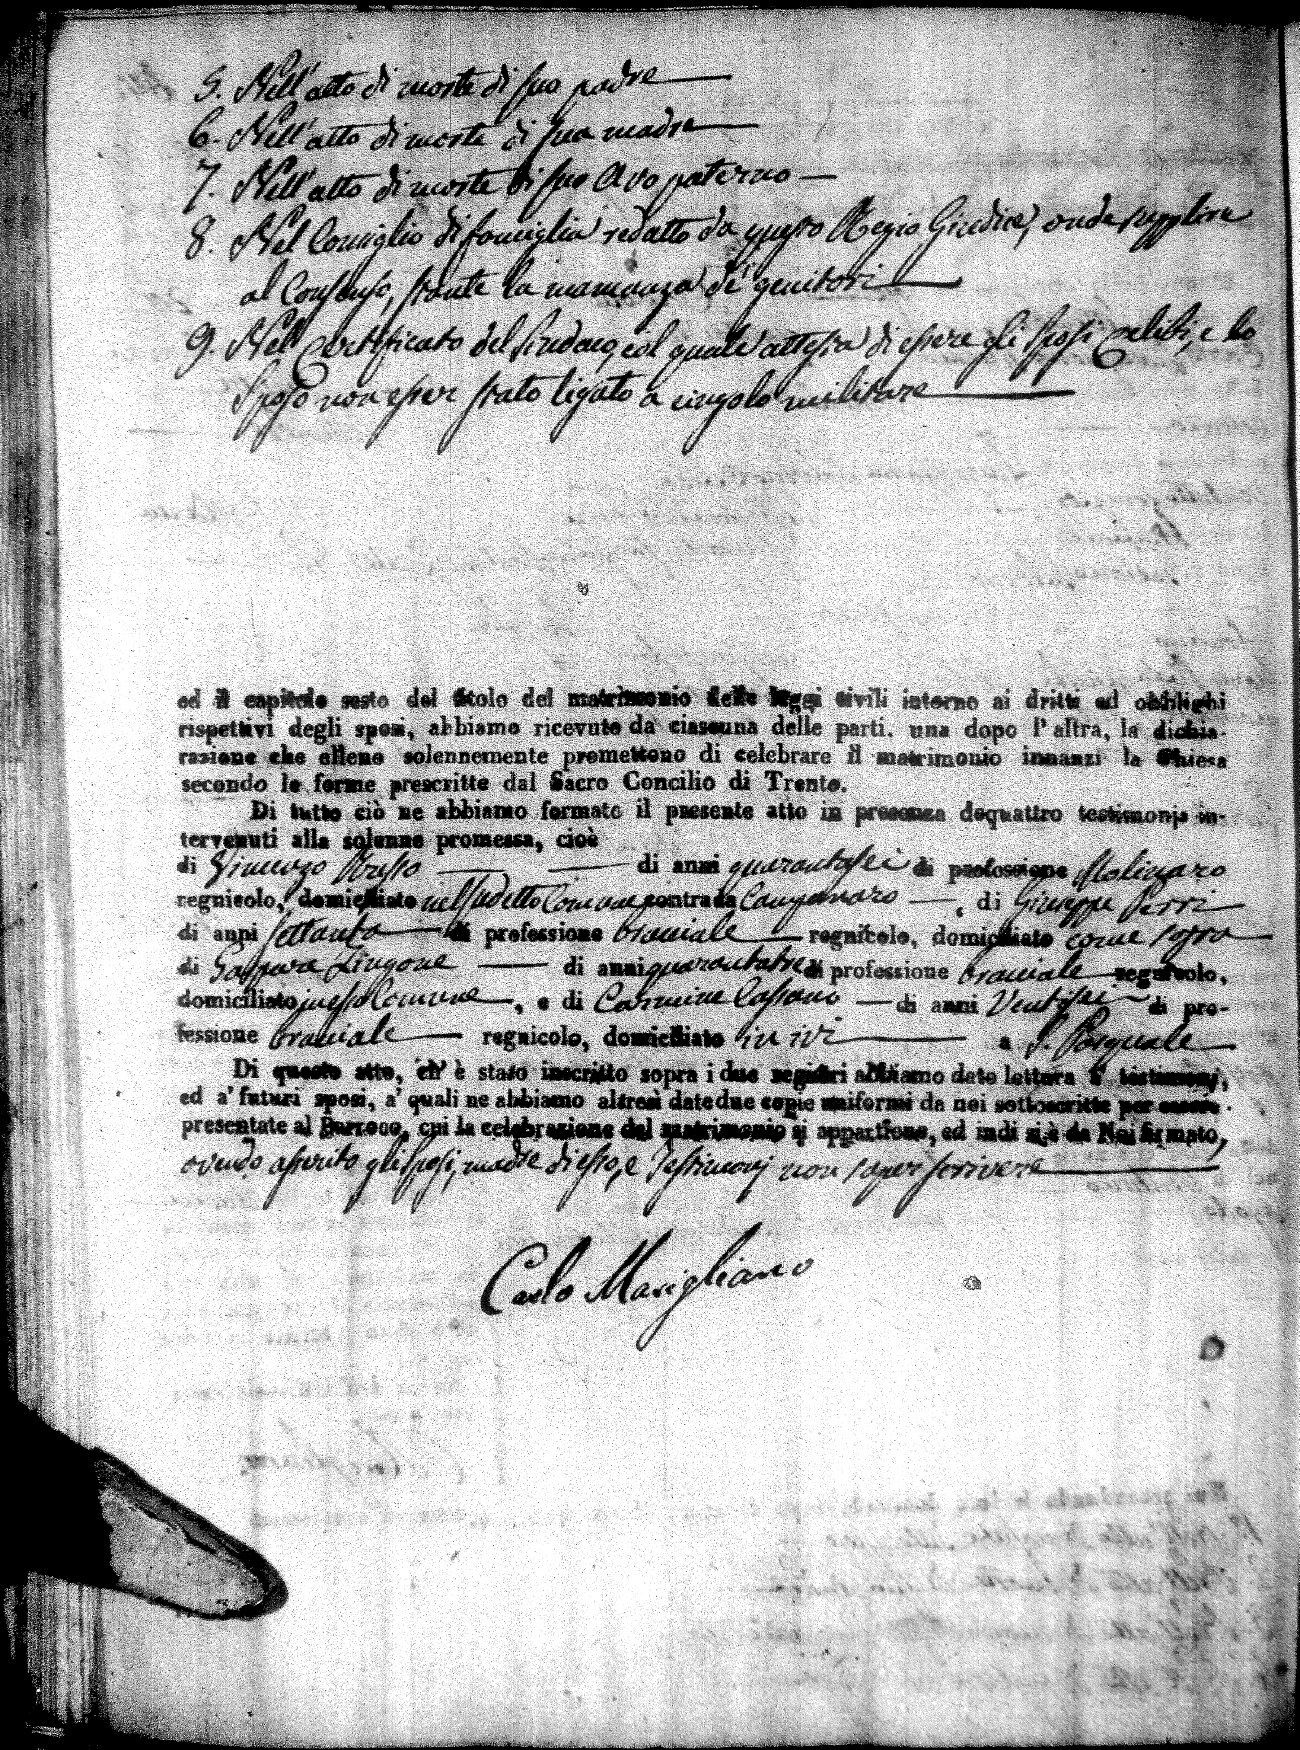 5. Nell'atto di morte di suo padre
6. Nell'atto di morte di sua madre
7. Nell'atto di morte di suo Avo paterno
8. Nel Consiglio di famiglia redatto da questo Regio Giudice, onde supplire
al Consenso, stante la mancanza de' genitori
9. Nel Certificato del Sindaco, col quale attesta di essere gli Sposi Celibi, e lo
Sposo non esser stato ligato a cingolo militare
ed il capitolo sesto del titolo del matrimonio delle leggi civili intorno ai dritti ed obblighi
rispettivi degli sposi, abbiamo ricevuto da ciascuna delle parti, una dopo l'altra, la dichia-
razione che elleno solennemente promettono di celebrare il matrimonio innanzi la Chiesa
secondo le forme prescritte dal Sacro Concilio di Trento.
Di tutto ciò ne abbiamo formato il presente atto in presenza dequattro testimonj in-
tervenuti alla solenne promessa, cioè
di Vincenzo Russo di anni quarantasei di professione Molinaro
regnicolo, domiciliato nel sudetto Comune contrada , di Giuseppe Perri
di anni settanta di professione bracciale regnicolo, domiciliato come sopra
di Gaspare di anni quarantatre di professione bracciale regnicolo,
domiciliato in esso Comune , e di Carmine Cassano di anni Ventisei di pro-
fessione bracciale regnicolo, domiciliato in ivi a S. Pasquale
Di questo atto, ch' è stato inscritto sopra i due registri abbiamo dato lettura a' testimonj,
ed a' futuri sposi, a' quali ne abbiamo altresì date due copie uniformi da noi sottoscritte per essere
presentate al Parroco, cui la celebrazione del matrimonio si appartiene, ed indi si è da Noi firmato,
avendo asserito gli Sposi, madre di esso, e Testimonj non saper scrivere
Carlo Marigliano